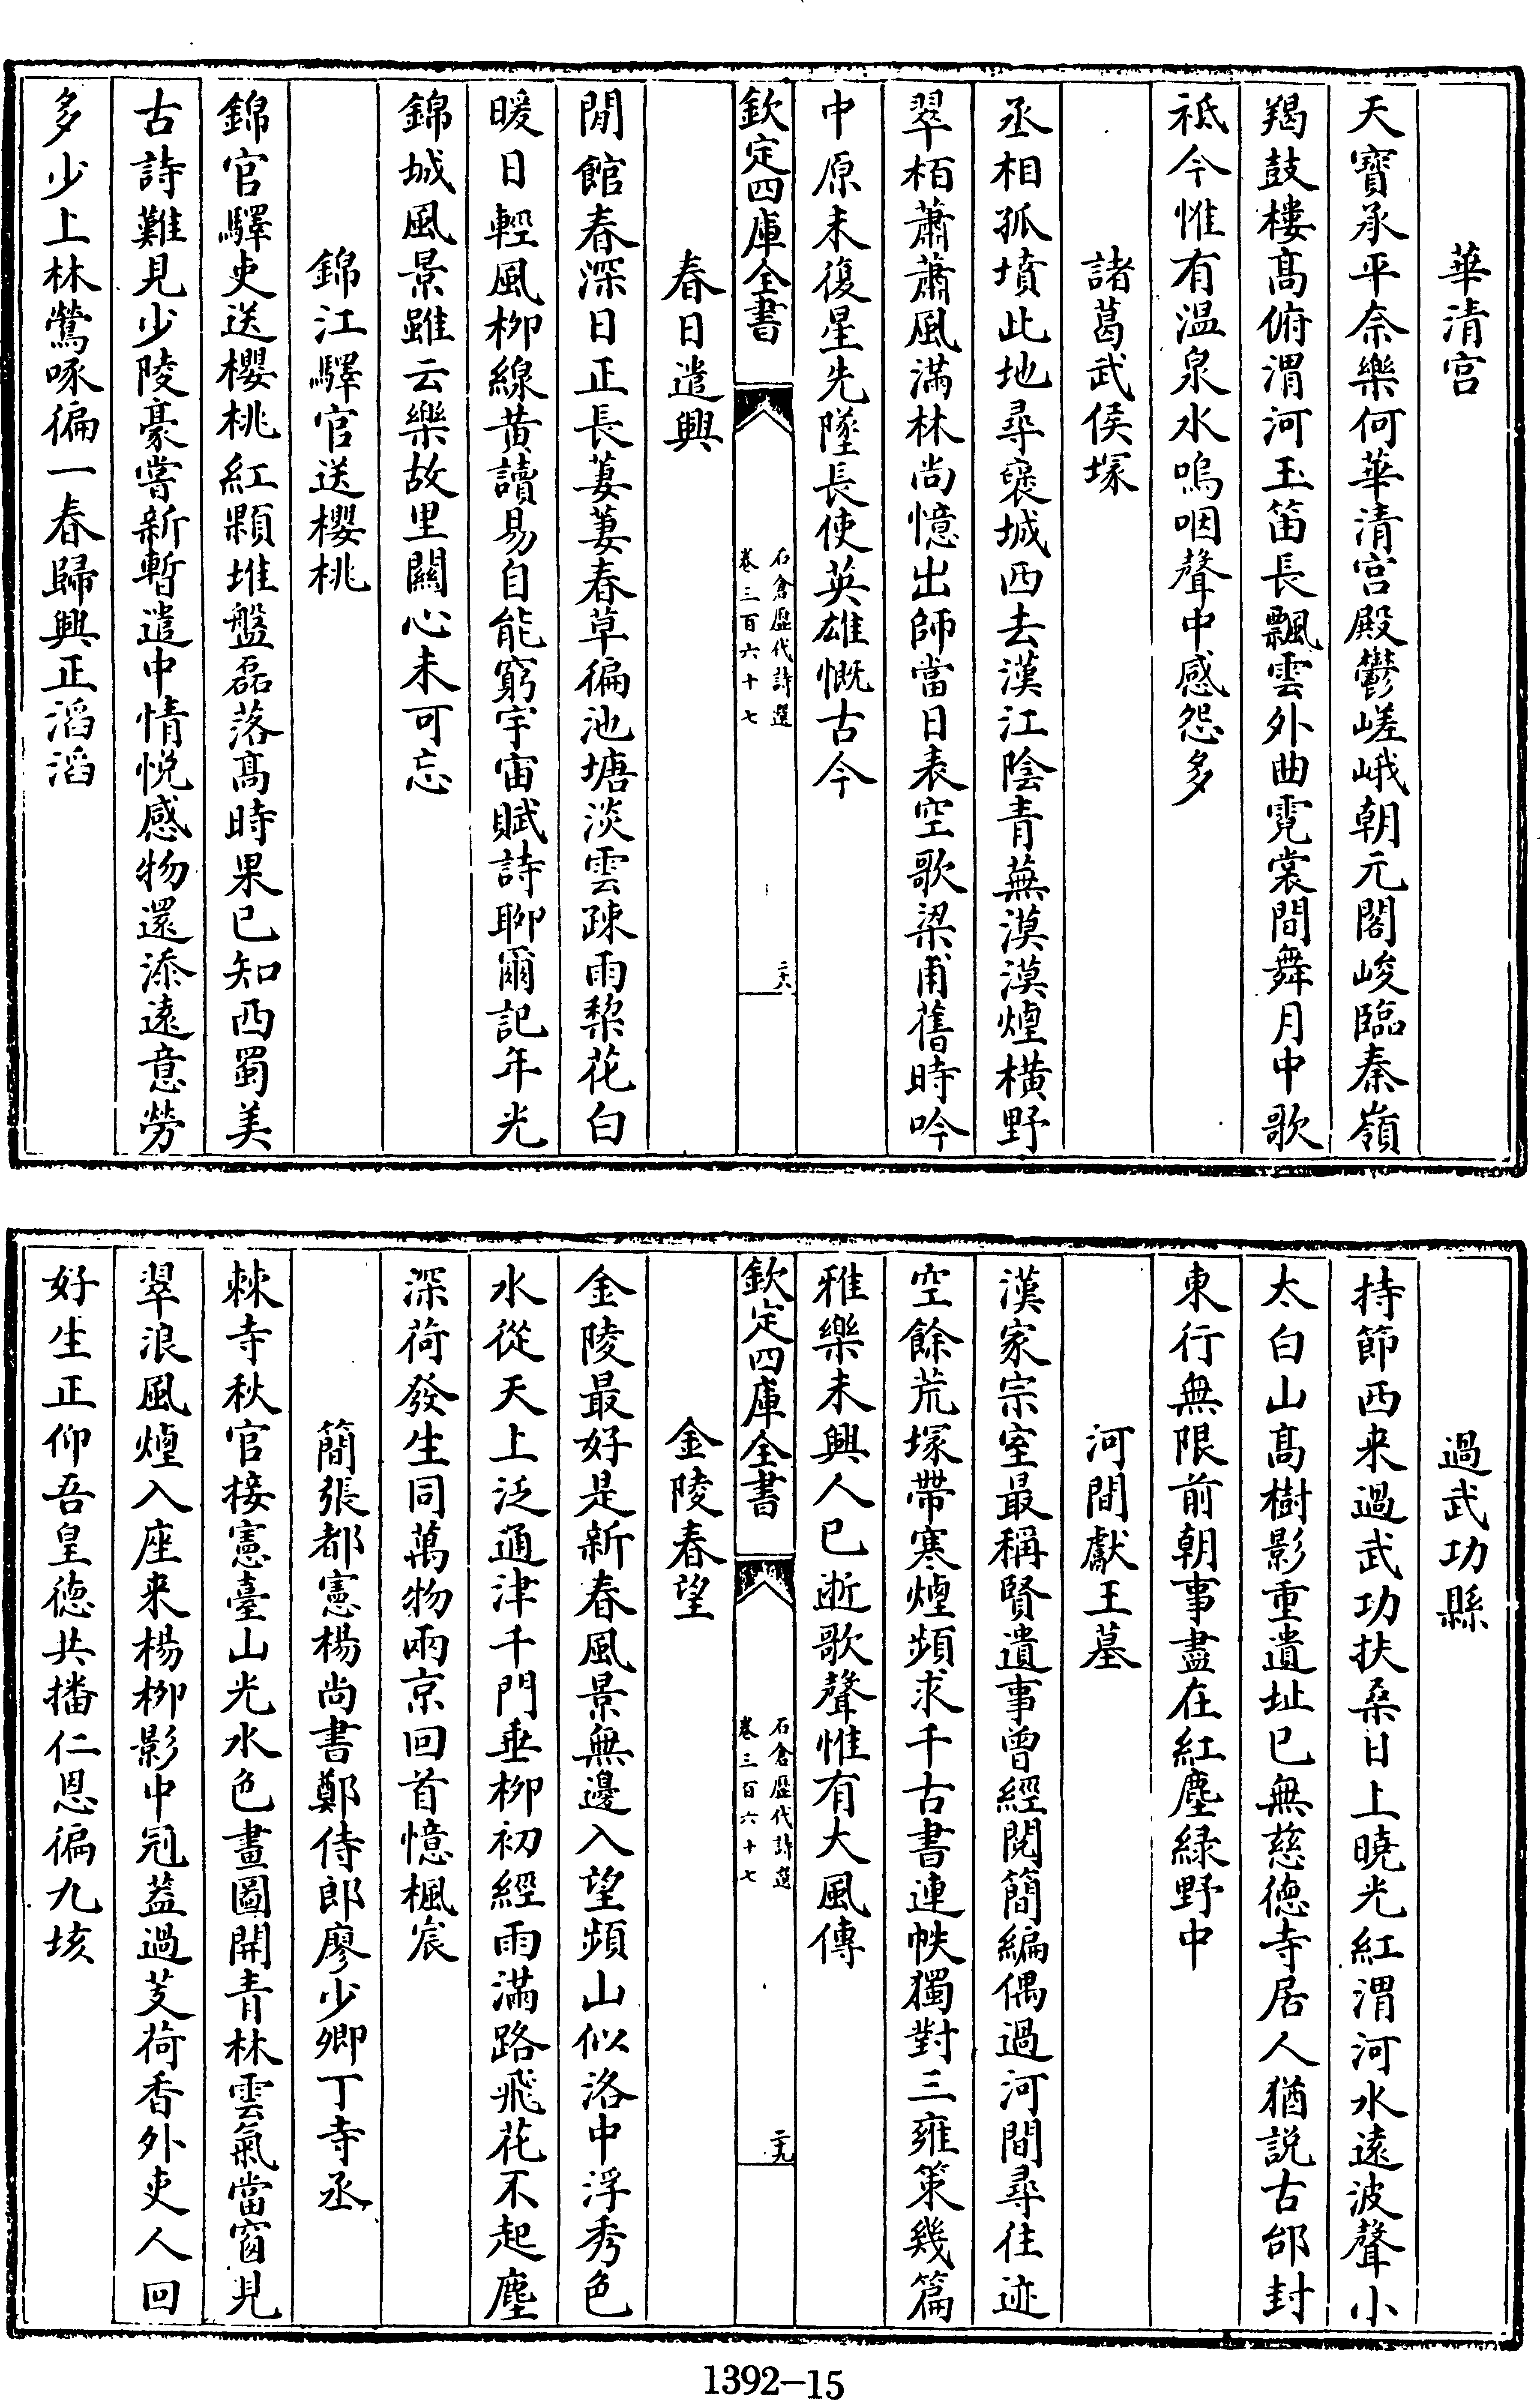 華清宮
天寶承平奈樂何華清宮殿鬱嵯峨朝元閣峻臨秦嶺
羯鼓樓髙俯渭河玉笛長飄雲外曲霓裳間舞月中歌
祗今惟有温泉水嗚咽聲中感怨多
諸葛武侯塚
丞相孤墳此地尋襃城西去漢江陰青蕪漠漠煙横野
翠栢蕭蕭風滿林尚憶出師當日表空歌梁甫舊時吟
中原未復星先墜長使英雄慨古今
欽定四庫全書
石倉歴代詩選
卷三百六十七
二十八
春日遣興
閒館春深日正長萋萋春草徧池塘淡雲疎雨棃花白
暖日輕風柳線黄讀易自能窮宇宙賦詩聊爾記年光
錦城風景雖云樂故里關心未可忘
錦江驛官送櫻桃
錦官驛吏送櫻桃紅顆堆盤磊落髙時果已知西蜀美
古詩難見少陵豪嘗新暫遣中情悦感物還添逺意勞
多少上林鶯啄徧一春歸興正滔滔
過武功縣
持節西来過武功扶桑日上曉光紅渭河水逺波聲小
太白山髙樹影重遺址已無慈德寺居人猶説古邰封
東行無限前朝事盡在紅塵緑野中
河間獻王墓
漢家宗室最稱賢遺事曾經閲簡編偶過河間尋往迹
空餘荒塚帶寒煙頻求千古書連帙獨對三雍策幾篇
雅樂未興人已逝歌聲惟有大風傳
欽定四庫全書
石倉歴代詩選
卷三百六十七
二十九
金陵春望
金陵最好是新春風景無邊入望頻山似洛中浮秀色
水從天上泛通津千門垂柳初經雨滿路飛花不起塵
深荷發生同萬物兩京回首憶楓宸
簡張都憲楊尚書鄭侍郎廖少卿丁寺丞
棘寺秋官接憲臺山光水色畫圖開青林雲氣當窗見
翠浪風煙入座来楊柳影中冠葢過芰荷香外吏人回
好生正仰吾皇德共播仁恩徧九垓
1392-15